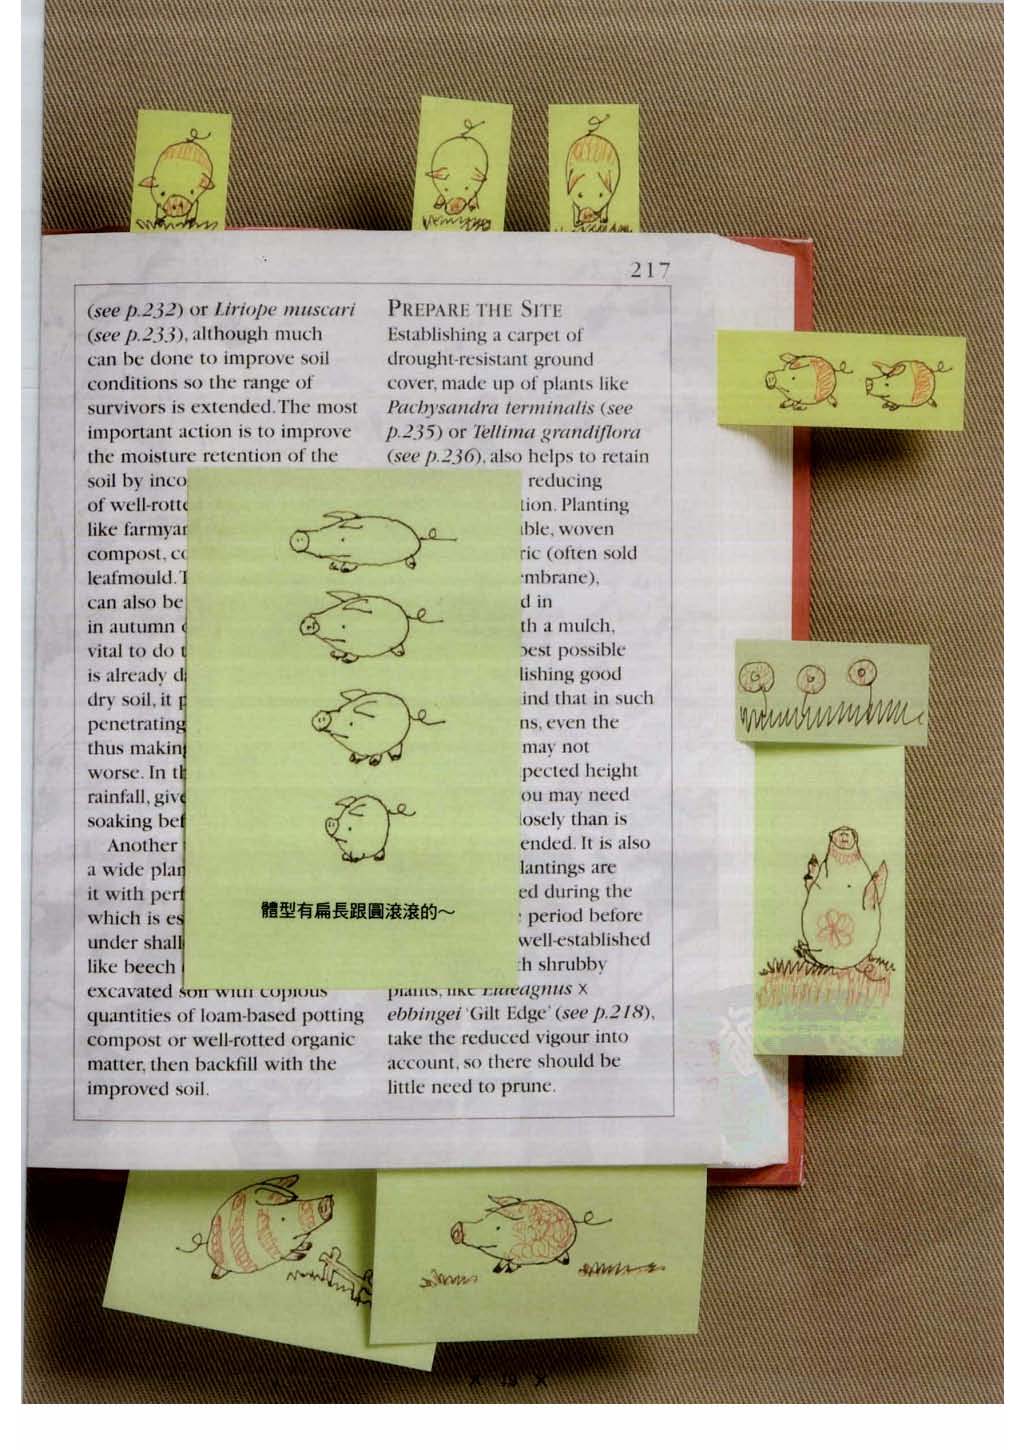 217
(see p.232) or Liriope muscari
(see p.233), although much
can be done to improve soil
conditions so the range of
survivors is extended. The most
important action is to improve
the moisture retention of the
soil by inco
of well-rotte
like farmyar
compost, co
leafmould. T
can also be
in autumn
vital to do t
is already d
dry soil, it p
penetrating
thus making
worse. In th
rainfall, give
soaking bef
Another
a wide plan
it with perf
which is es
under shall
like beech
excavated soil with copious
quantities of loam-based potting
compost or well-rotted organic
matter, then backfill with the
improved soil.
PREPARE THE SITE
Establishing a carpet of
drought-resistant ground
cover, made up of plants like
Pachysandra terminalis (see
p.235) or Tellima grandiflora
(see p.236), also helps to retain
reducing
tion. Planting
able, woven
ric (often sold
mbrane),
d in
th a mulch,
best possible
lishing good
ind that in such
ns, even the
may not
pected height
ou may need
losely than is
ended. It is also
lantings are
ed during the
period before
well-established
th shrubby
plants, like Elaeagnus x
ebbingei 'Gilt Edge' (see p.218),
take the reduced vigour into
account, so there should be
little need to prune.
體型有扁長跟圓滾滾的～